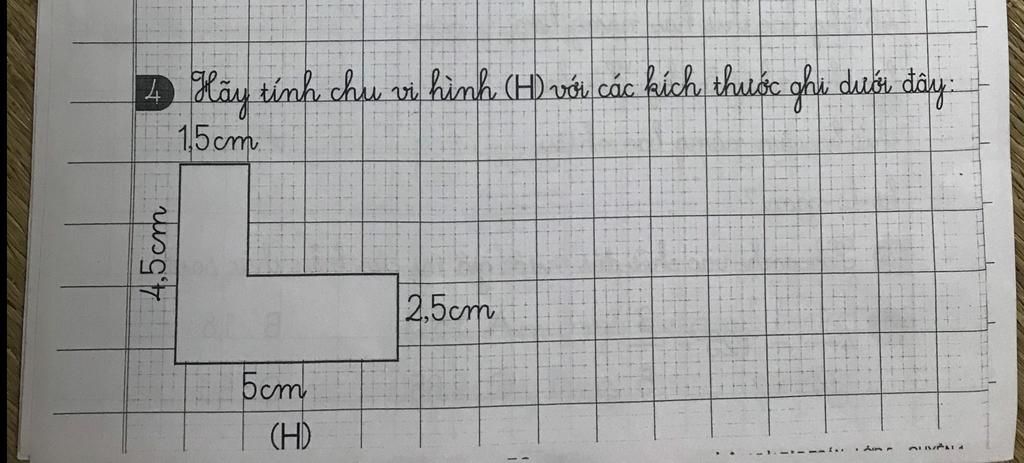 4 Hãy tính chu vi hình (H) với các kích thước ghi dưới đây:
1,5cm
4,5cm
2,5cm
5cm
(H)